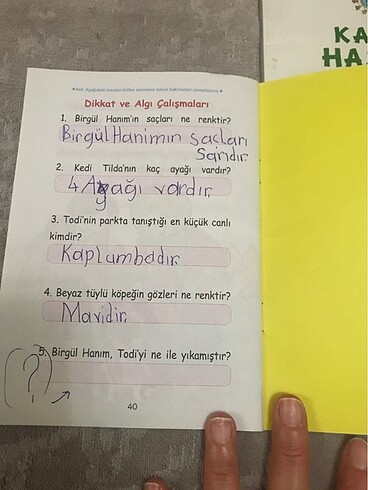 KA
HA
Dikkat ve Algı Çalışmaları
1. Birgül Hanım'ın saçları ne renktir?
Birgül Hanımın saçları
Sarıdır.
2. Kedi Tilda'nın kaç ayağı vardır?
4 Ayağı vardır.
3. Todi'nin parkta tanıştığı en küçük canlı
kimdir?
Kaplumbadır.
4. Beyaz tüylü köpeğin gözleri ne renktir?
Mavidir.
5. Birgül Hanım, Todi'yi ne ile yıkamıştır?
(?)
40